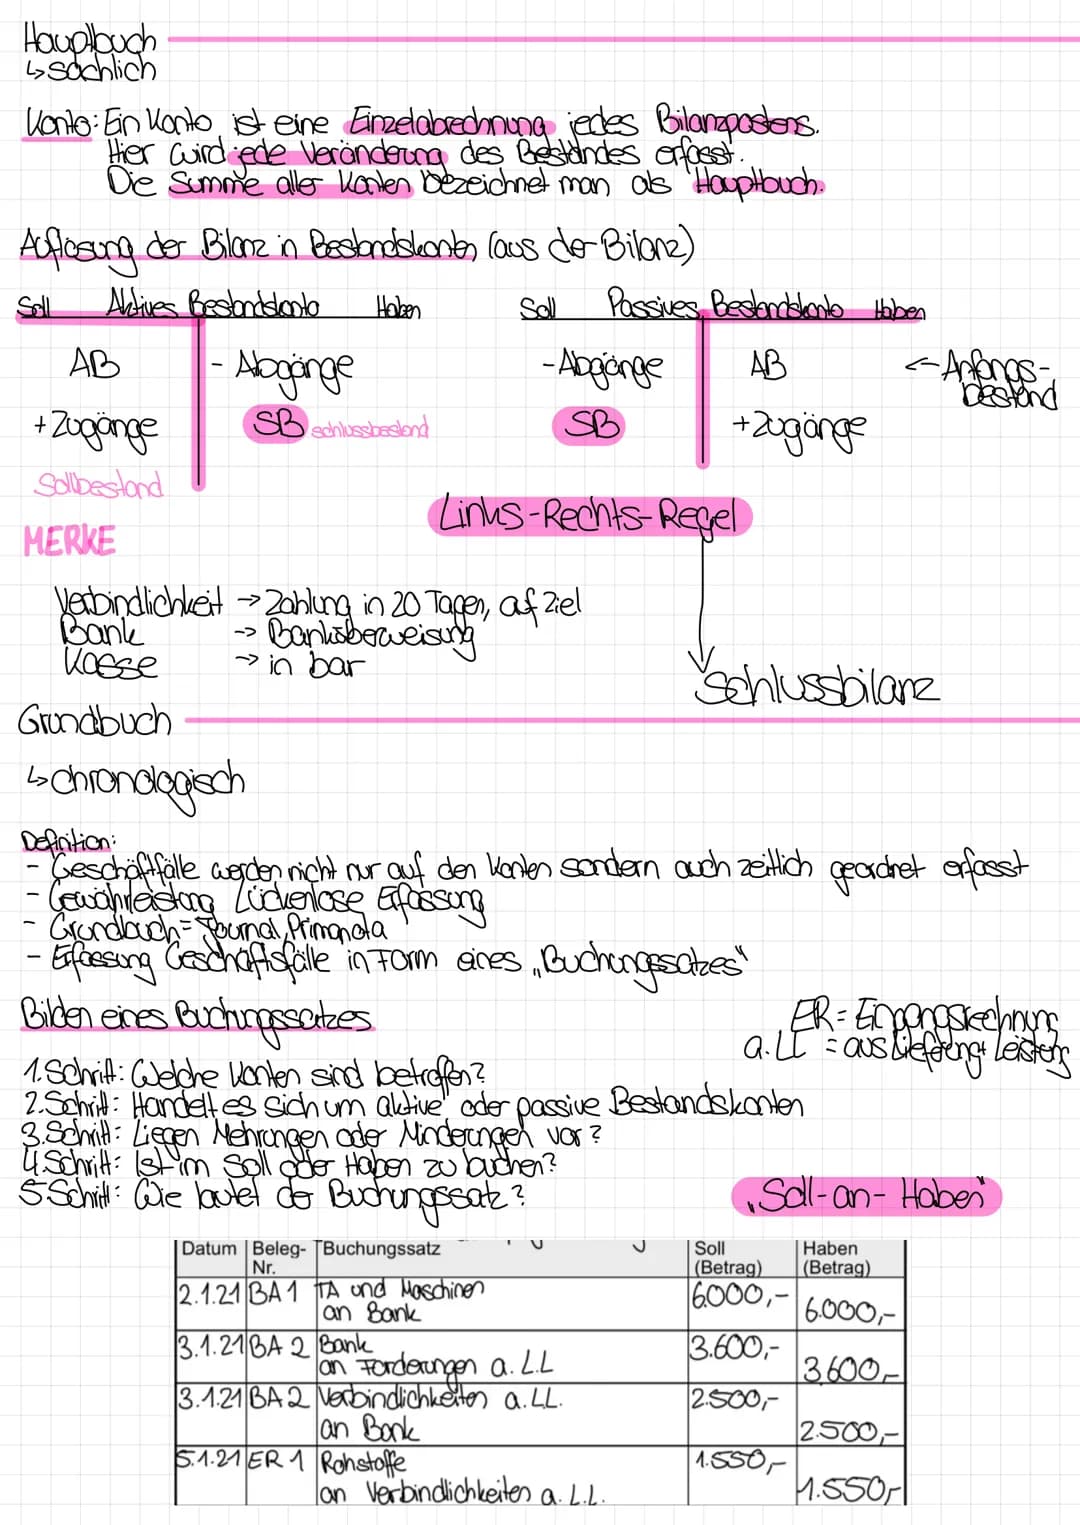 Hauptbuch
↳ sachlich
Konto: Ein Konto ist eine Einzelabrechnung jedes Bilanzpostens.
Hier wird jede Veränderung des Bestandes erfasst.
Die Summe aller Konten bezeichnet man als Hauptbuch.
Auflösung der Bilanz in Bestandskonten (aus der Bilanz)
Soll Aktives Bestandskonto Haben
Soll Passives Bestandskonto Haben
AB - Abgänge
- Abgänge AB ← Anfangs-
bestand
+ Zugänge SB schlussbestand
SB + Zugänge
Sollbestand
Links-Rechts-Regel
MERKE
Verbindlichkeit → Zahlung in 20 Tagen, auf Ziel
Bank -> Banküberweisung
Kasse → in bar
Schlussbilanz
Grundbuch
↳ chronologisch
Definition:
- Geschäftfälle werden nicht nur auf den Konten sondern auch zeitlich geordnet erfasst
- Gewährleistung Lückenlose Erfassung
- Grundbuch = Journal, Primanota
- Erfassung Geschäftsfälle in Form eines „Buchungssatzes"
Bilden eines Buchungssatzes
ER = Eingangsrechnung
a.LL = aus Lieferung + Leistung
1. Schritt: Welche Konten sind betroffen?
2. Schritt: Handelt es sich um aktive oder passive Bestandskonten
3. Schritt: Liegen Mehrungen oder Minderungen vor?
4. Schritt: Ist im Soll oder Haben zu buchen?
5 Schritt: Wie lautet der Buchungssatz?
„Soll-an-Haben"
Datum Beleg- Buchungssatz Soll Haben
Nr. (Betrag) (Betrag)
2.1.21 BA 1 TA und Maschinen 6000,-
an Bank 6.000,-
3.1.21 BA 2 Bank 3.600,-
an Forderungen a.L.L 3.600,-
3.1.21 BA 2 Verbindlichkeiten a.LL. 2.500,-
an Bank 2.500,-
5.1.21 ER 1 Rohstoffe 1.550,-
an Verbindlichkeiten a.L.L. 1.550,-